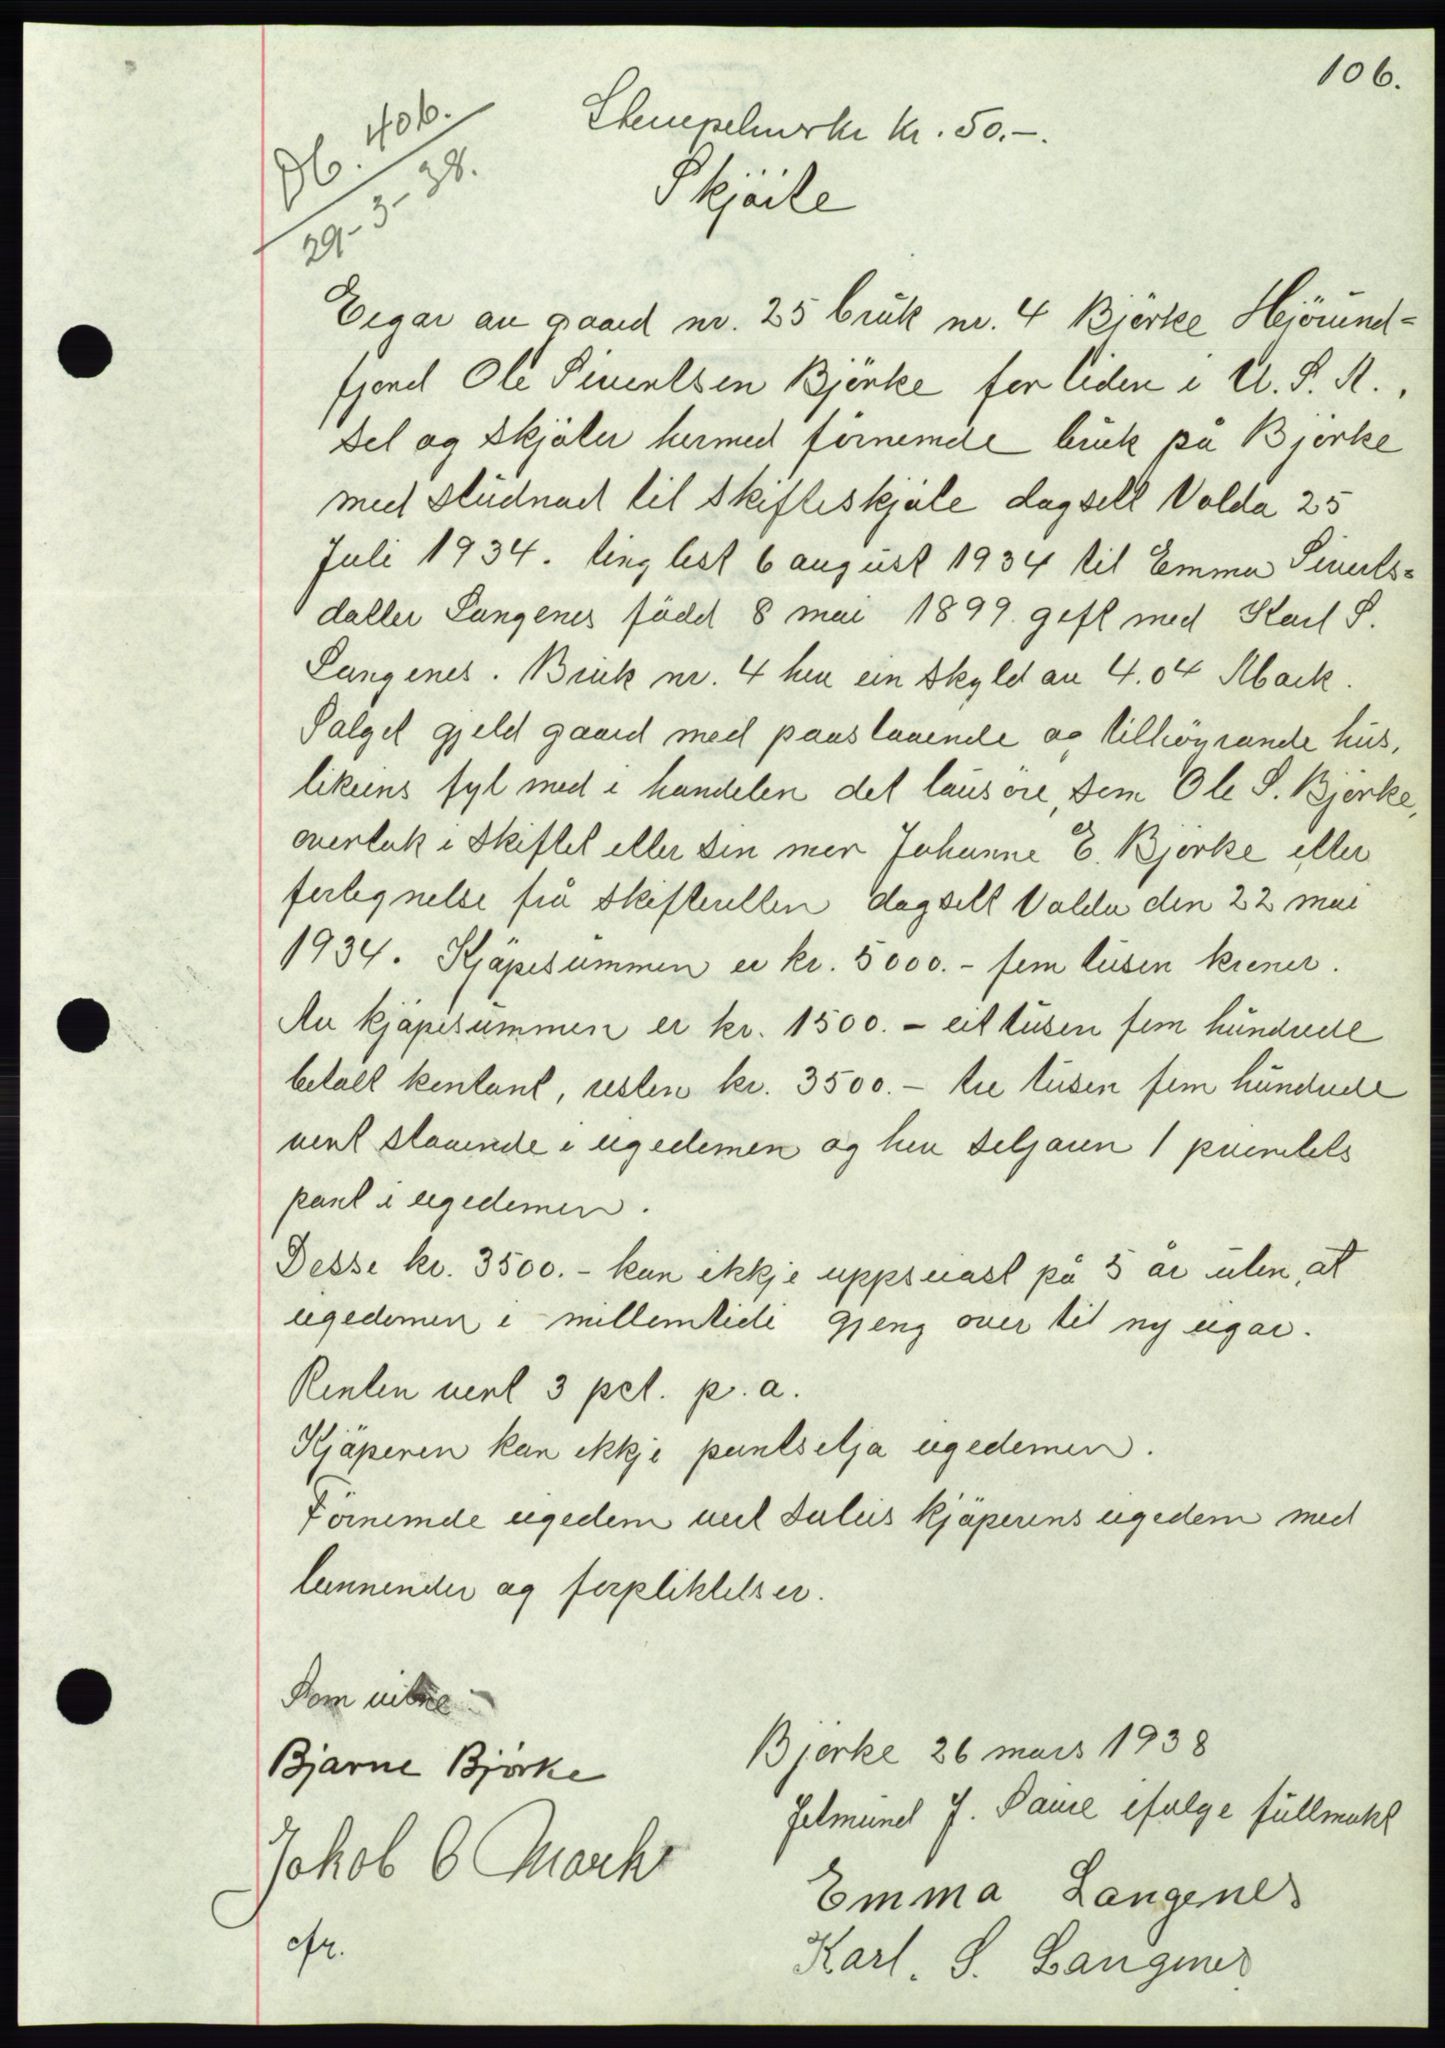 106.
Db. 406.
29-3-38.
Stempelmerke kr. 50.-.
Skjöite
Eigar av gaard nr. 25 bruk nr. 4 Björke Hjörund=
fjord Ole Sivertsen Björke for tiden i U. S. A.,
sel og skjöter hermed fornemde bruk på Björke
med studnad til skifteskjöte dagsett Volda 25
Juli 1934. tinglest 6 august 1934 til Emma Siverts=
datter Langenes född 8 mai 1899. gift med Karl S.
Langenes. Bruk nr. 4 hev ein skyld av 4.04 Mark.
Salget gjeld gaard med paastaaende og tilhöyrande hus,
likeins fyl med i handelen det lausöre, som Ole S. Björke,
overtok i skiftet etter sin mor Johanne E. Björke etter
fortegnelse frå skifteretten dagsett Volda den 22 mai
1934. Kjöpesummen er kr. 5000.- fem tusen kroner.
Av kjöpesummen er kr. 1500.- eit tusen fem hundrede
betalt kontant, resten kr. 3500.- tre tusen fem hundrede
vert staaende i eigedomen og hev seljaren 1 prioritets
pant i eigedomen.
Desse kr. 3500.- kan ikkje uppseiast på 5 år uten, at
eigedomen i millemtidi gjeng over til ny eigar.
Renten vert 3 pct. p. a.
Kjöperen kan ikkje pantsetja eigedomen.
Fornemde eigedom vert saleis kjöperens eigedom med
lunnender og forpliktelser.
Som vitne
Bjarne Björke
Jakob O Mork
cfr.
Björke 26 mars 1938
Jetmund J. Saure ifølge fullmakt
Emma Langenes
Karl. S. Langenes